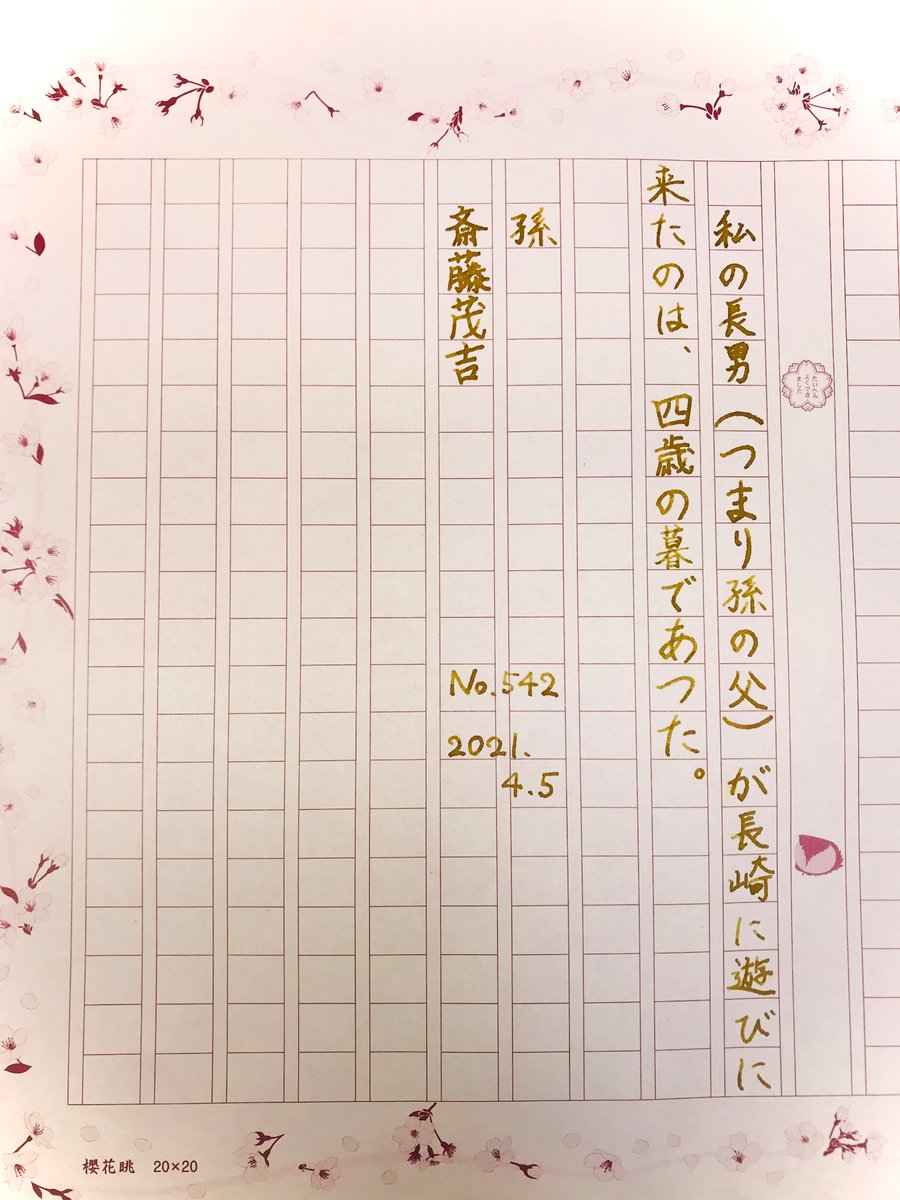 私の長男(つまり孫の父)が長崎に遊びに
来たのは、四歳の暮であつた。
孫
斎藤茂吉
No.542
2021.
4.5
たいへん
よくでき
ました
櫻花眺 20×20